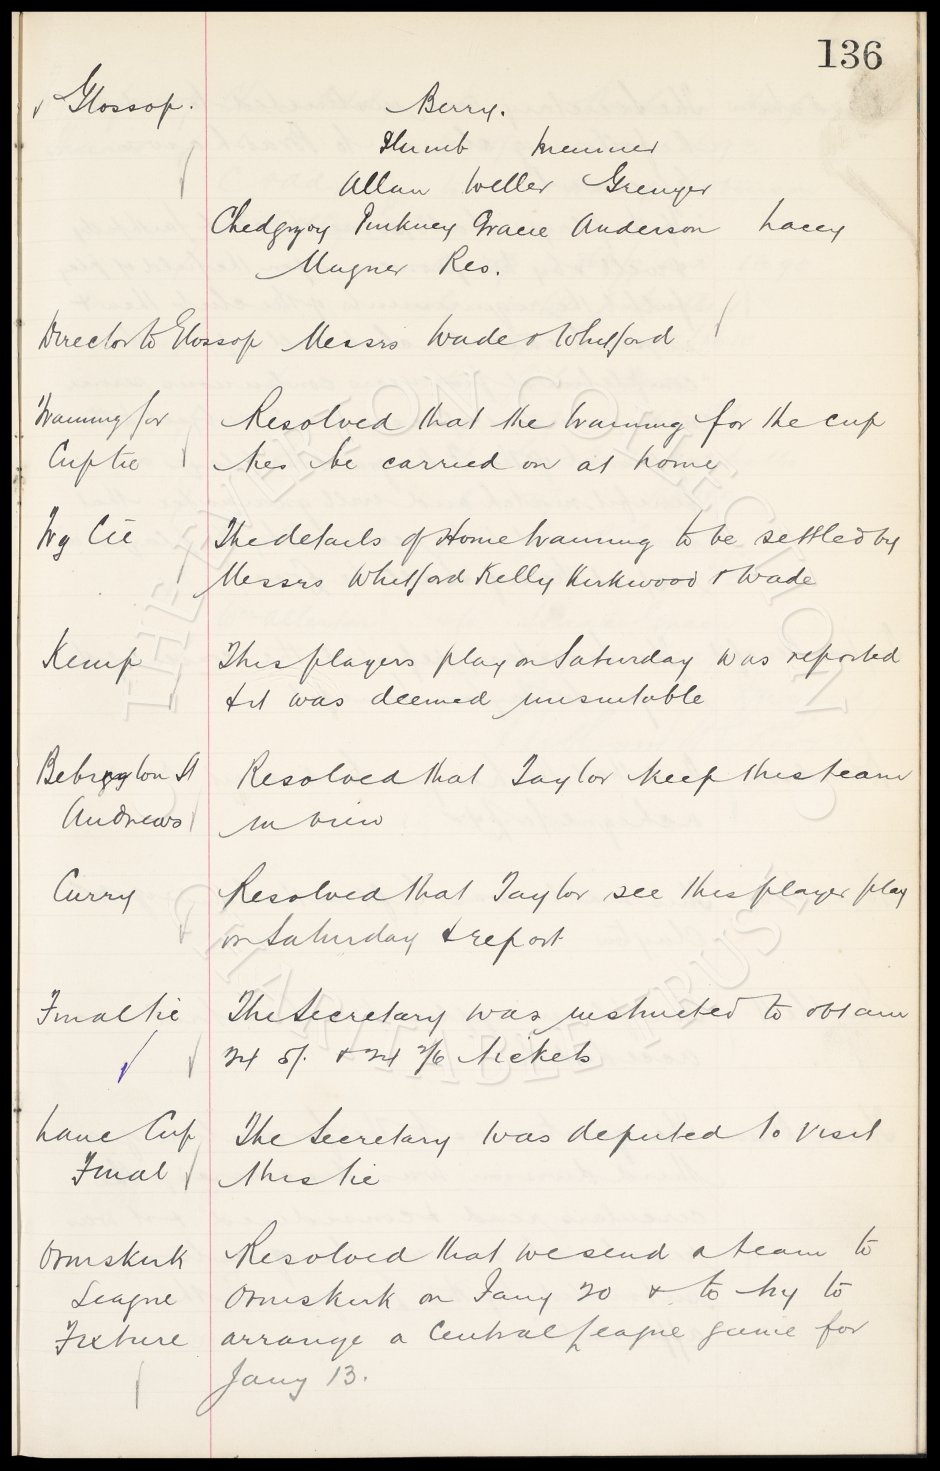 136
Glossop. Berry.
Stumb Meunier
Allan Weller Grenyer
Chedgzoy Pinkney Gracie Anderson Lacey
Magner Res.
Director to Glossop Messrs Wade & Whitford
Training for Resolved that the training for the cup
Cup tie ties be carried on at home
Trg Cte The details of Home training to be settled by
Messrs Whitford Kelly Kirkwood & Wade
Kemp This players play on Saturday was reported
& it was deemed unsuitable
Bebington St Resolved that Taylor keep this team
Andrews in view
Curry Resolved that Taylor see this player play
on Saturday & report
Final tie The Secretary was instructed to obtain
24 5/- & 24 2/6 tickets
Lanc Cup The Secretary was deputed to visit
Final this tie
Ormskirk Resolved that we send a team to
League Ormskirk on Jany 20 & to try to
Fixture arrange a Central League game for
Jany 13.
THE EVERTON COLLECTION
CHARITABLE TRUST